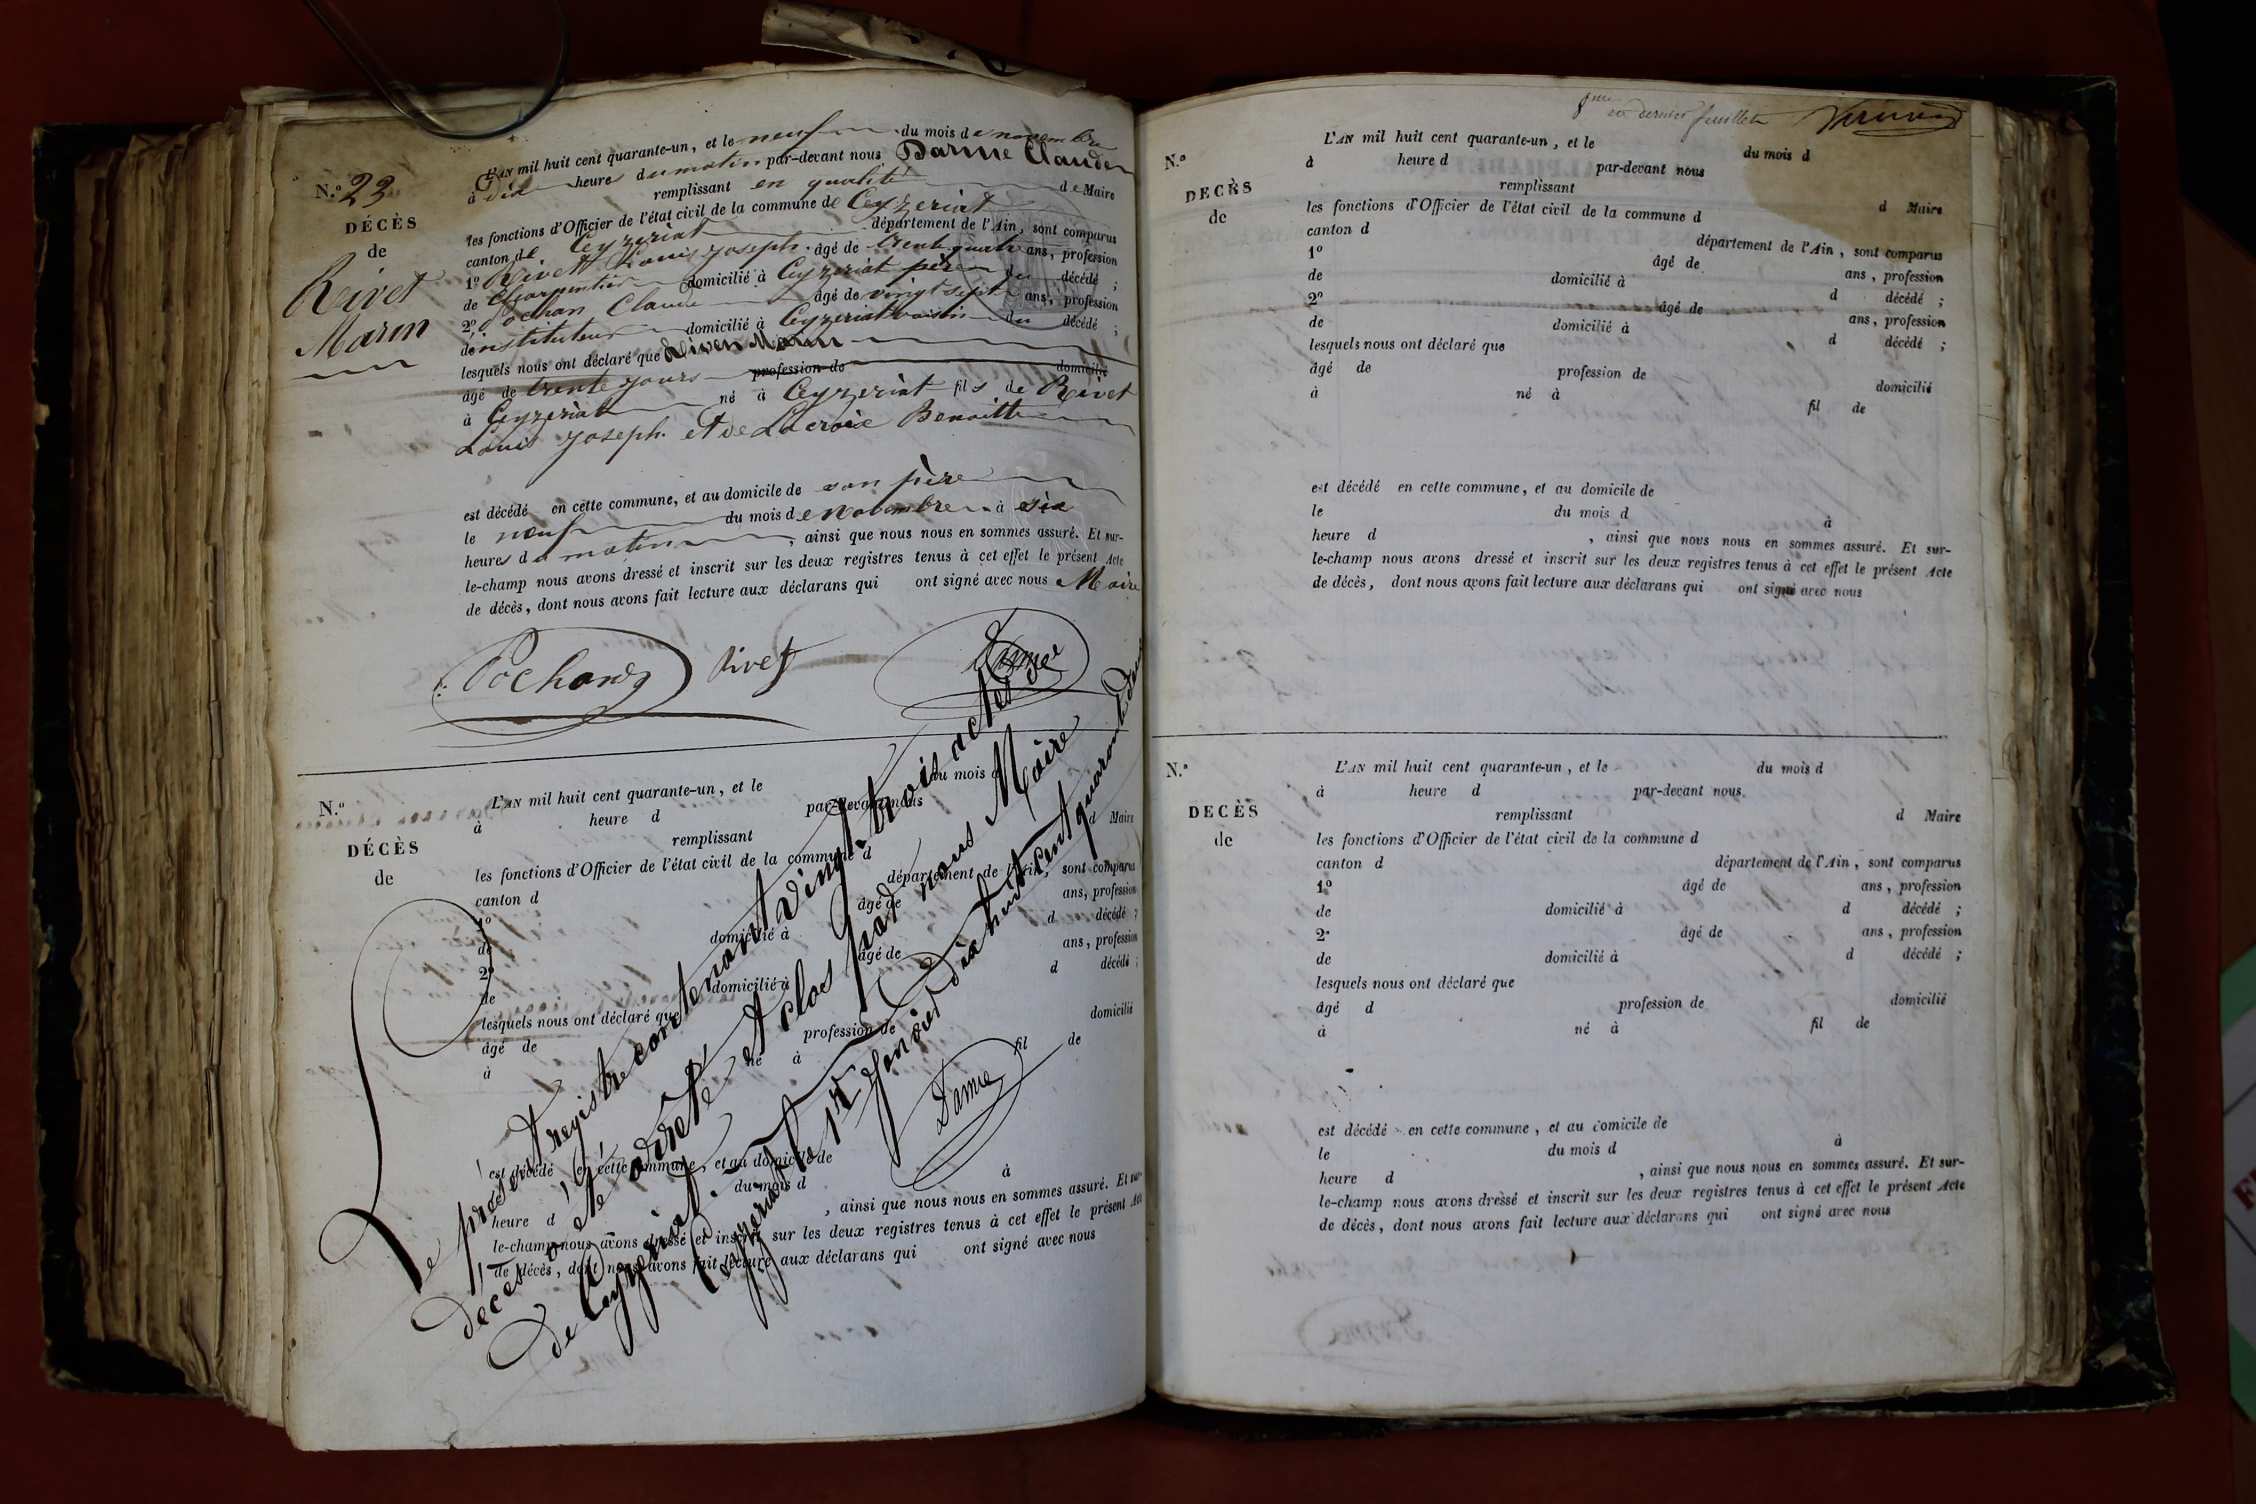 N.º 23
DÉCÈS
de
Rivet
Marin
L'AN mil huit cent quarante-un, et le neuf du mois de novembre
à Dix heures du matin par-devant nous Darme Claude
remplissant en qualité de Maire
les fonctions d'Officier de l'état civil de la commune de Ceyzeriat
canton de Ceyzeriat département de l'Ain, sont comparus
1º Rivet Louis Joseph âgé de trente quatre ans, profession
de Charpentier domicilié à Ceyzeriat père du décédé ;
2º Pochan Claude âgé de vingt sept ans, profession
d'instituteur domicilié à Ceyzeriat voisin du décédé ;
lesquels nous ont déclaré que Rivet Marin
âgé de trente jours profession de domicilié
à Ceyzeriat né à Ceyzeriat fils de Rivet
Louis Joseph et de Lacroix Benoitte
est décédé en cette commune, et au domicile de son père
le neuf du mois de novembre à six
heures du matin, ainsi que nous nous en sommes assuré. Et sur-
le-champ nous avons dressé et inscrit sur les deux registres tenus à cet effet le présent Acte
de décès, dont nous avons fait lecture aux déclarans qui ont signé avec nous Maire
Pochand Rivet Darme
N.º
DÉCÈS
de
L'AN mil huit cent quarante-un, et le du mois d
à heure d par-devant nous
remplissant d Maire
les fonctions d'Officier de l'état civil de la commune d
canton d département de l'Ain, sont comparus
1º âgé de ans, profession
de domicilié à d décédé ;
2º âgé de ans, profession
de domicilié à d décédé ;
lesquels nous ont déclaré que
âgé de profession de domicilié
à né à fil de
est décédé en cette commune, et au domicile de
du mois d à
heure d , ainsi que nous nous en sommes assuré. Et sur-
le-champ nous avons dressé et inscrit sur les deux registres tenus à cet effet le présent Acte
de décès, dont nous avons fait lecture aux déclarans qui ont signé avec nous
Le présent registre contenant vingt trois actes de
décès a été arêté et clos par nous Maire
de Ceyzeriat.
Ceyzeriat le 1er Janvier dix huit cent quarante deux
Darme
et dernier feuillet
N.º
DÉCÈS
de
L'AN mil huit cent quarante-un, et le du mois d
à heure d par-devant nous
remplissant d Maire
les fonctions d'Officier de l'état civil de la commune d
canton d département de l'Ain, sont comparus
1º âgé de ans, profession
de domicilié à d décédé ;
2º âgé de ans, profession
de domicilié à d décédé ;
lesquels nous ont déclaré que
âgé de profession de domicilié
à né à fil de
est décédé en cette commune, et au domicile de
le du mois d à
heure d , ainsi que nous nous en sommes assuré. Et sur-
le-champ nous avons dressé et inscrit sur les deux registres tenus à cet effet le présent Acte
de décès, dont nous avons fait lecture aux déclarans qui ont signé avec nous
N.º
DÉCÈS
de
L'AN mil huit cent quarante-un, et le du mois d
à heure d par-devant nous
remplissant d Maire
les fonctions d'Officier de l'état civil de la commune d
canton d département de l'Ain, sont comparus
1º âgé de ans, profession
de domicilié à d décédé ;
2º âgé de ans, profession
de domicilié à d décédé ;
lesquels nous ont déclaré que
âgé d profession de domicilié
à né à fil de
est décédé en cette commune, et au domicile de
le du mois d à
heure d , ainsi que nous nous en sommes assuré. Et sur-
le-champ nous avons dressé et inscrit sur les deux registres tenus à cet effet le présent Acte
de décès, dont nous avons fait lecture aux déclarans qui ont signé avec nous